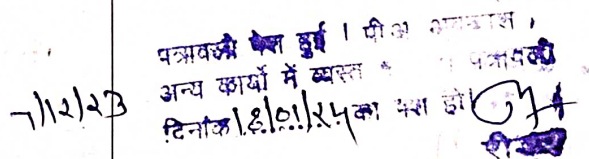 पत्रावली पेश हुई । पी०अ०
7/12/23 अन्य कार्यो में व्यस्त पत्रावली
दिनांक 18/01/24 का पेश हो